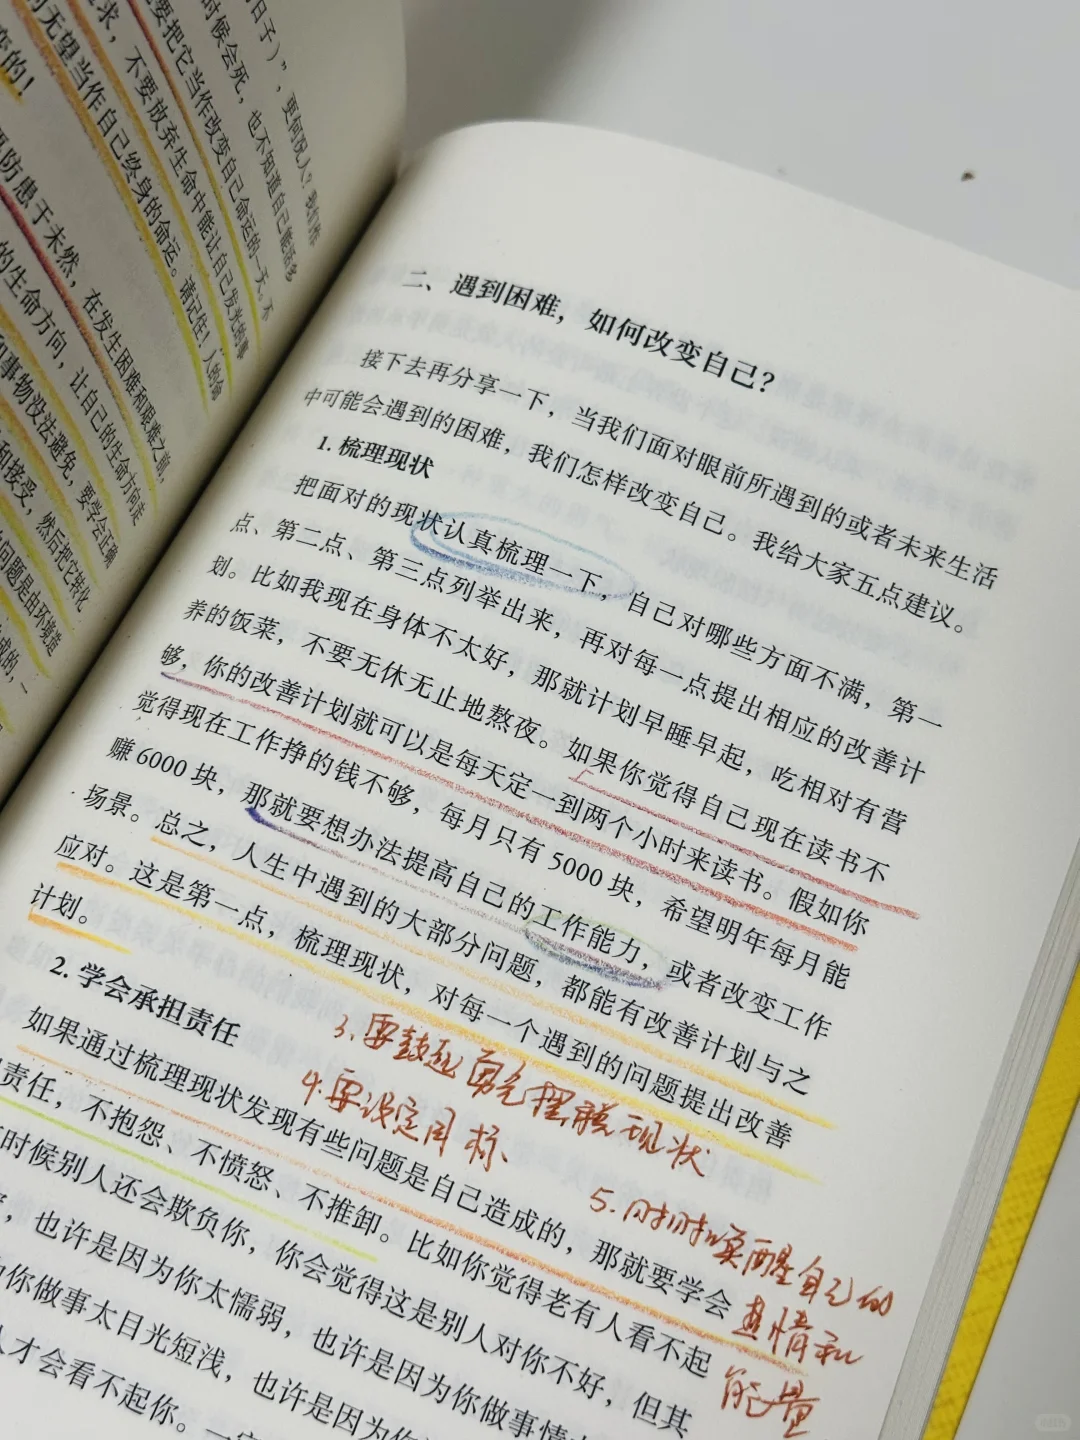 日子）”，更何况人？我们养
时候会死，也不知道自己能活多
要把它当作改变自己命运的一天。不
求，不要放弃生命中能让自己发光的事
的无望当作自己终身的命运。请记住！人的命
变的！
防患于未然，在发生困难和艰难之前，
的生命方向，让自己的生命方向走
和事物没法避免，要学会正确
和接受，然后把它转化
问题是由环境造
成的，一
二、遇到困难，如何改变自己？
接下去再分享一下，当我们面对眼前所遇到的或者未来生活
中可能会遇到的困难，我们怎样改变自己。我给大家五点建议。
1. 梳理现状
把面对的现状认真梳理一下，自己对哪些方面不满，第一
点、第二点、第三点列举出来，再对每一点提出相应的改善计
划。比如我现在身体不太好，那就计划早睡早起，吃相对有营
养的饭菜，不要无休无止地熬夜。如果你觉得自己现在读书不
够，你的改善计划就可以是每天定一到两个小时来读书。假如你
觉得现在工作挣的钱不够，每月只有 5000 块，希望明年每月能
赚 6000 块，那就要想办法提高自己的工作能力，或者改变工作
场景。总之，人生中遇到的大部分问题，都能有改善计划与之
应对。这是第一点，梳理现状，对每一个遇到的问题提出改善
计划。
2. 学会承担责任
3.要鼓起勇气摆脱现状
4.要设定目标
如果通过梳理现状发现有些问题是自己造成的，那就要学会
责任，不抱怨、不愤怒、不推卸。比如你觉得老有人看不起
时候别人还会欺负你，你会觉得这是别人对你不好，但其
，也许是因为你太懦弱，也许是因为你做事情
你做事太目光短浅，也许是因为
人才会看不起你。一
5.时时唤醒自己的
热情和
能量